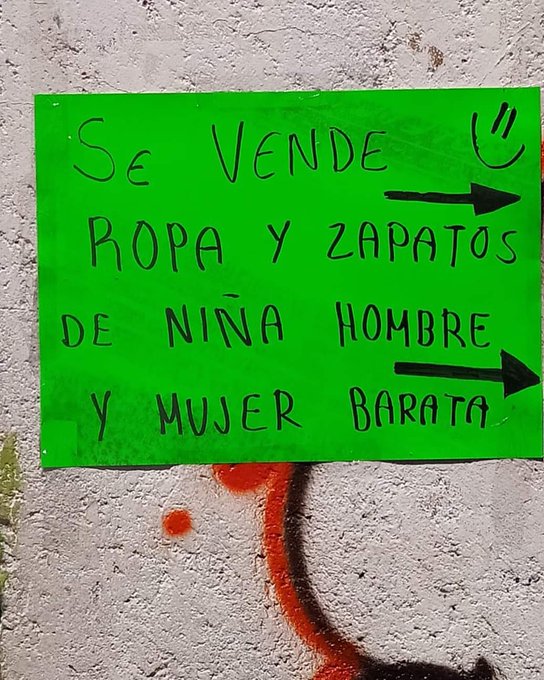 SE VENDE
ROPA Y ZAPATOS
DE NIÑA HOMBRE
Y MUJER BARATA